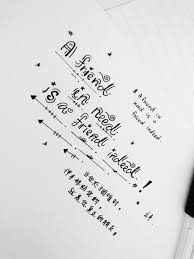 A friend
in need
is a
friend indeed!
A friend in
need is a
friend indeed.
就是你真正的朋友。